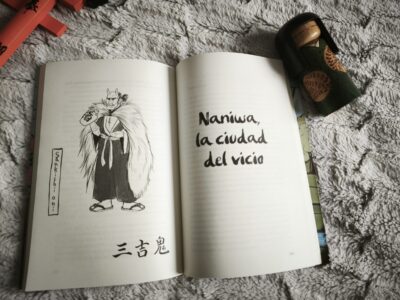 Sankichi-oni
三吉鬼
Naniwa,
la ciudad
del vicio